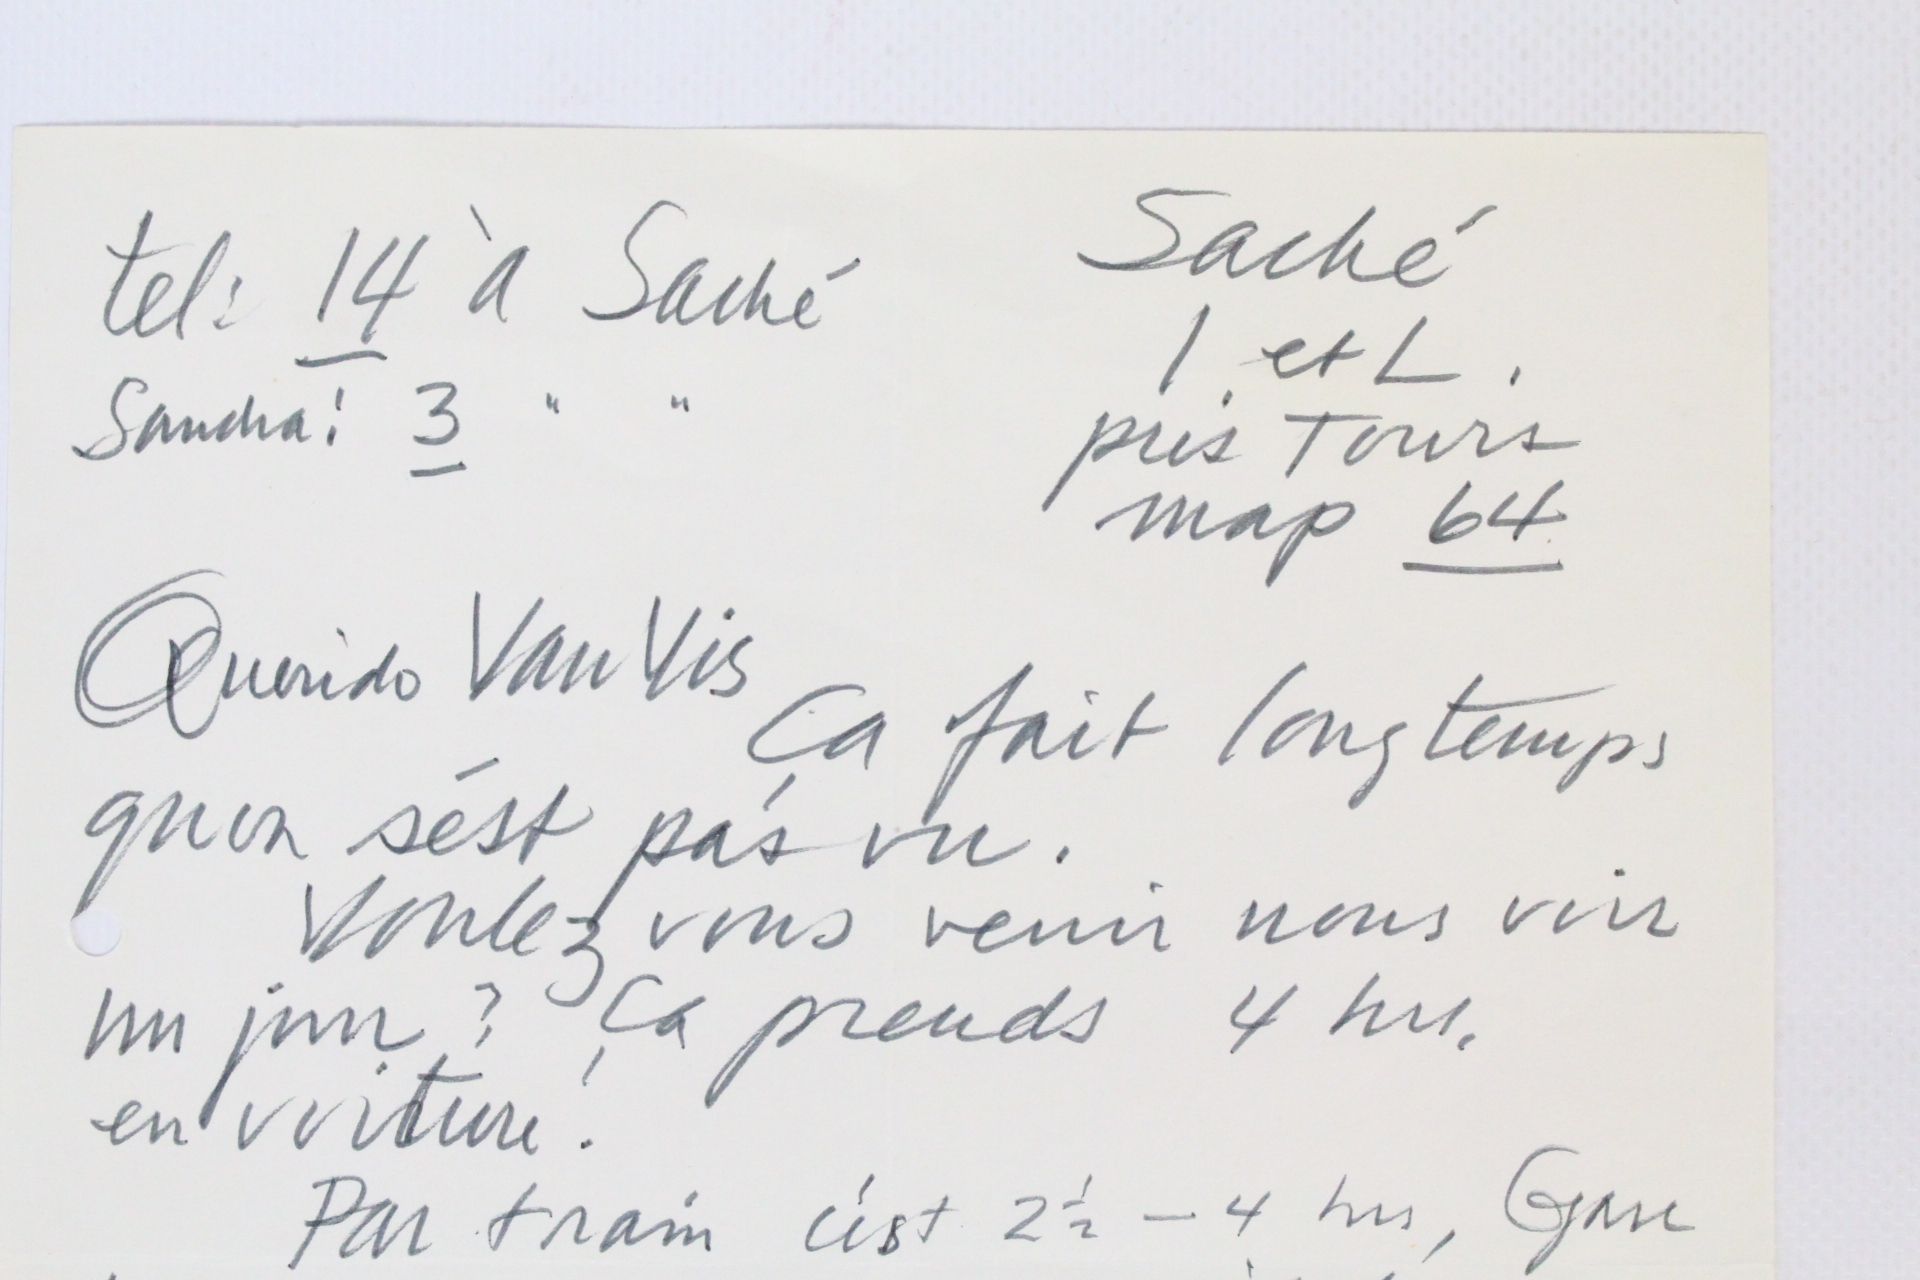 tel: 14 à Saché
Sandra: 3 " "
Saché
I et L.
près Tours
map 64
Querido Van Vis
Ça fait longtemps
qu'on s'ést pas vu.
Voulez vous venir nous voir
un jour? Ça prends 4 hrs.
en voiture!
Par train c'est 2½ - 4 hrs, Gare